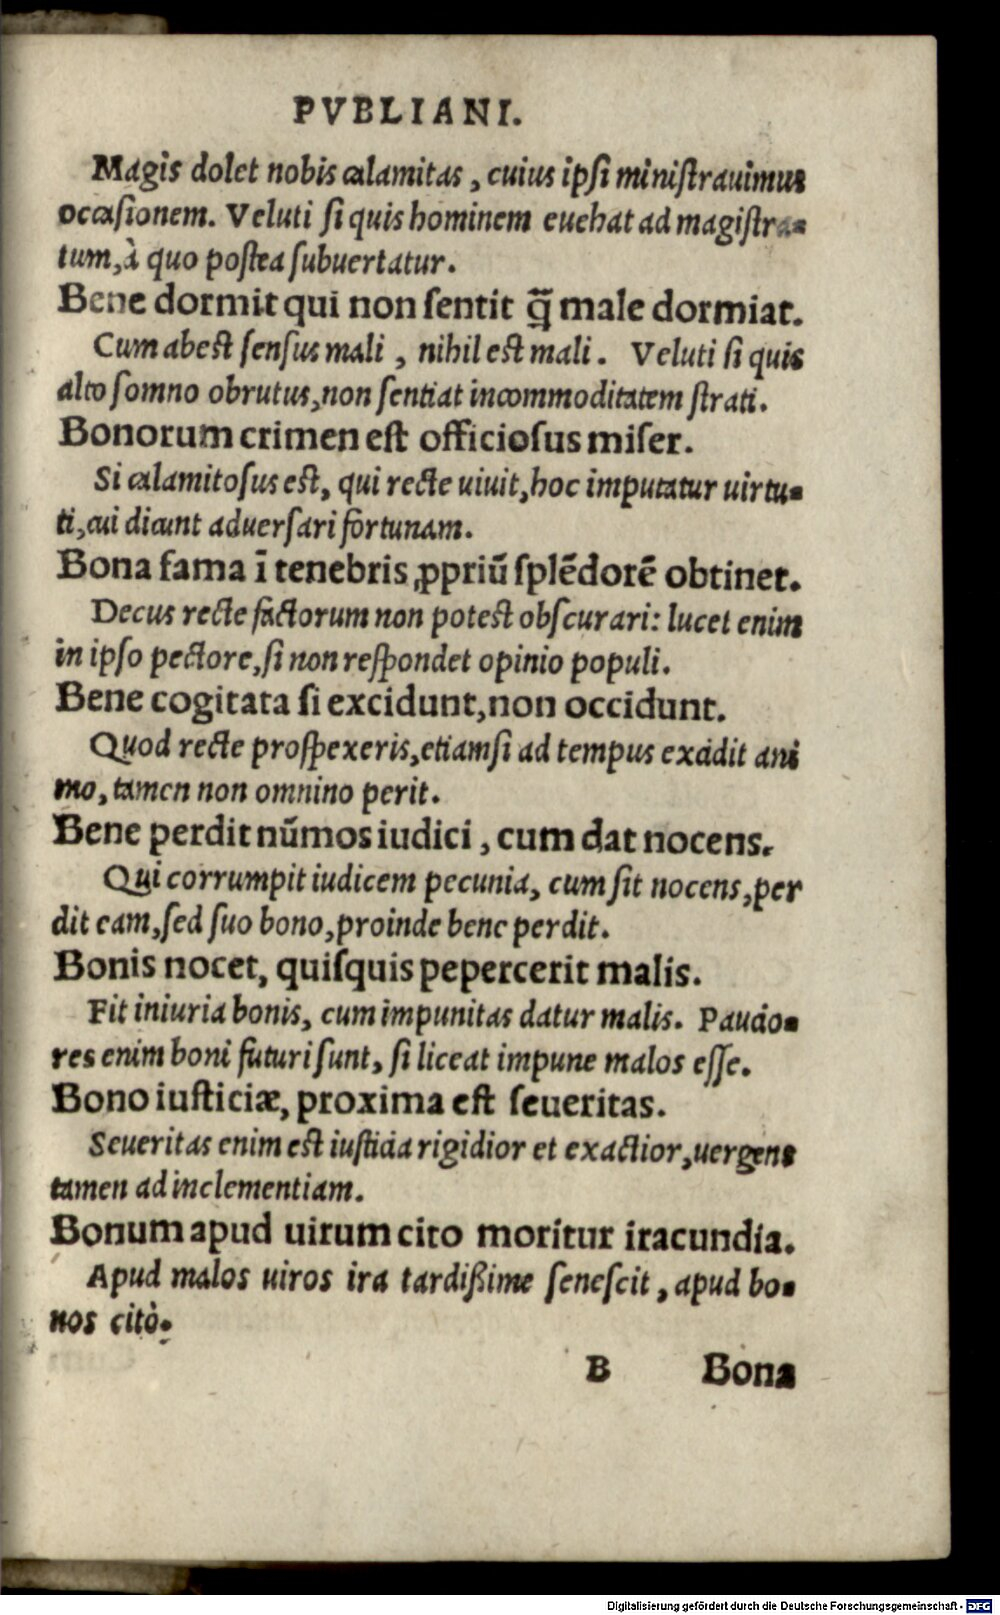 PVBLIANI.
Magis dolet nobis calamitas, cuius ipsi ministrauimus
occasionem. Veluti si quis hominem euehat ad magistra-
tum, à quo postea subuertatur.
Bene dormit qui non sentit q̃ male dormiat.
Cum abest sensus mali, nihil est mali. Veluti si quis
alto somno obrutus, non sentiat incommoditatem strati.
Bonorum crimen est officiosus miser.
Si calamitosus est, qui recte uiuit, hoc imputatur uirtu-
ti, cui dicunt aduersari fortunam.
Bona fama ĩ tenebris ꝓpriũ splẽdorẽ obtinet.
Decus recte factorum non potest obscurari: lucet enim
in ipso pectore, si non respondet opinio populi.
Bene cogitata si excidunt, non occidunt.
Quod recte prospexeris, etiamsi ad tempus excidit ani
mo, tamen non omnino perit.
Bene perdit nũmos iudici, cum dat nocens.
Qui corrumpit iudicem pecunia, cum sit nocens, per
dit eam, sed suo bono, proinde bene perdit.
Bonis nocet, quisquis pepercerit malis.
Fit iniuria bonis, cum impunitas datur malis. Paucio-
res enim boni futuri sunt, si liceat impune malos esse.
Bono iusticiæ, proxima est seueritas.
Seueritas enim est iusticia rigidior et exactior, uergens
tamen ad inclementiam.
Bonum apud uirum cito moritur iracundia.
Apud malos uiros ira tardißime senescit, apud bo-
nos citò.
B Bona
Digitalisierung gefördert durch die Deutsche Forschungsgemeinschaft - DFG